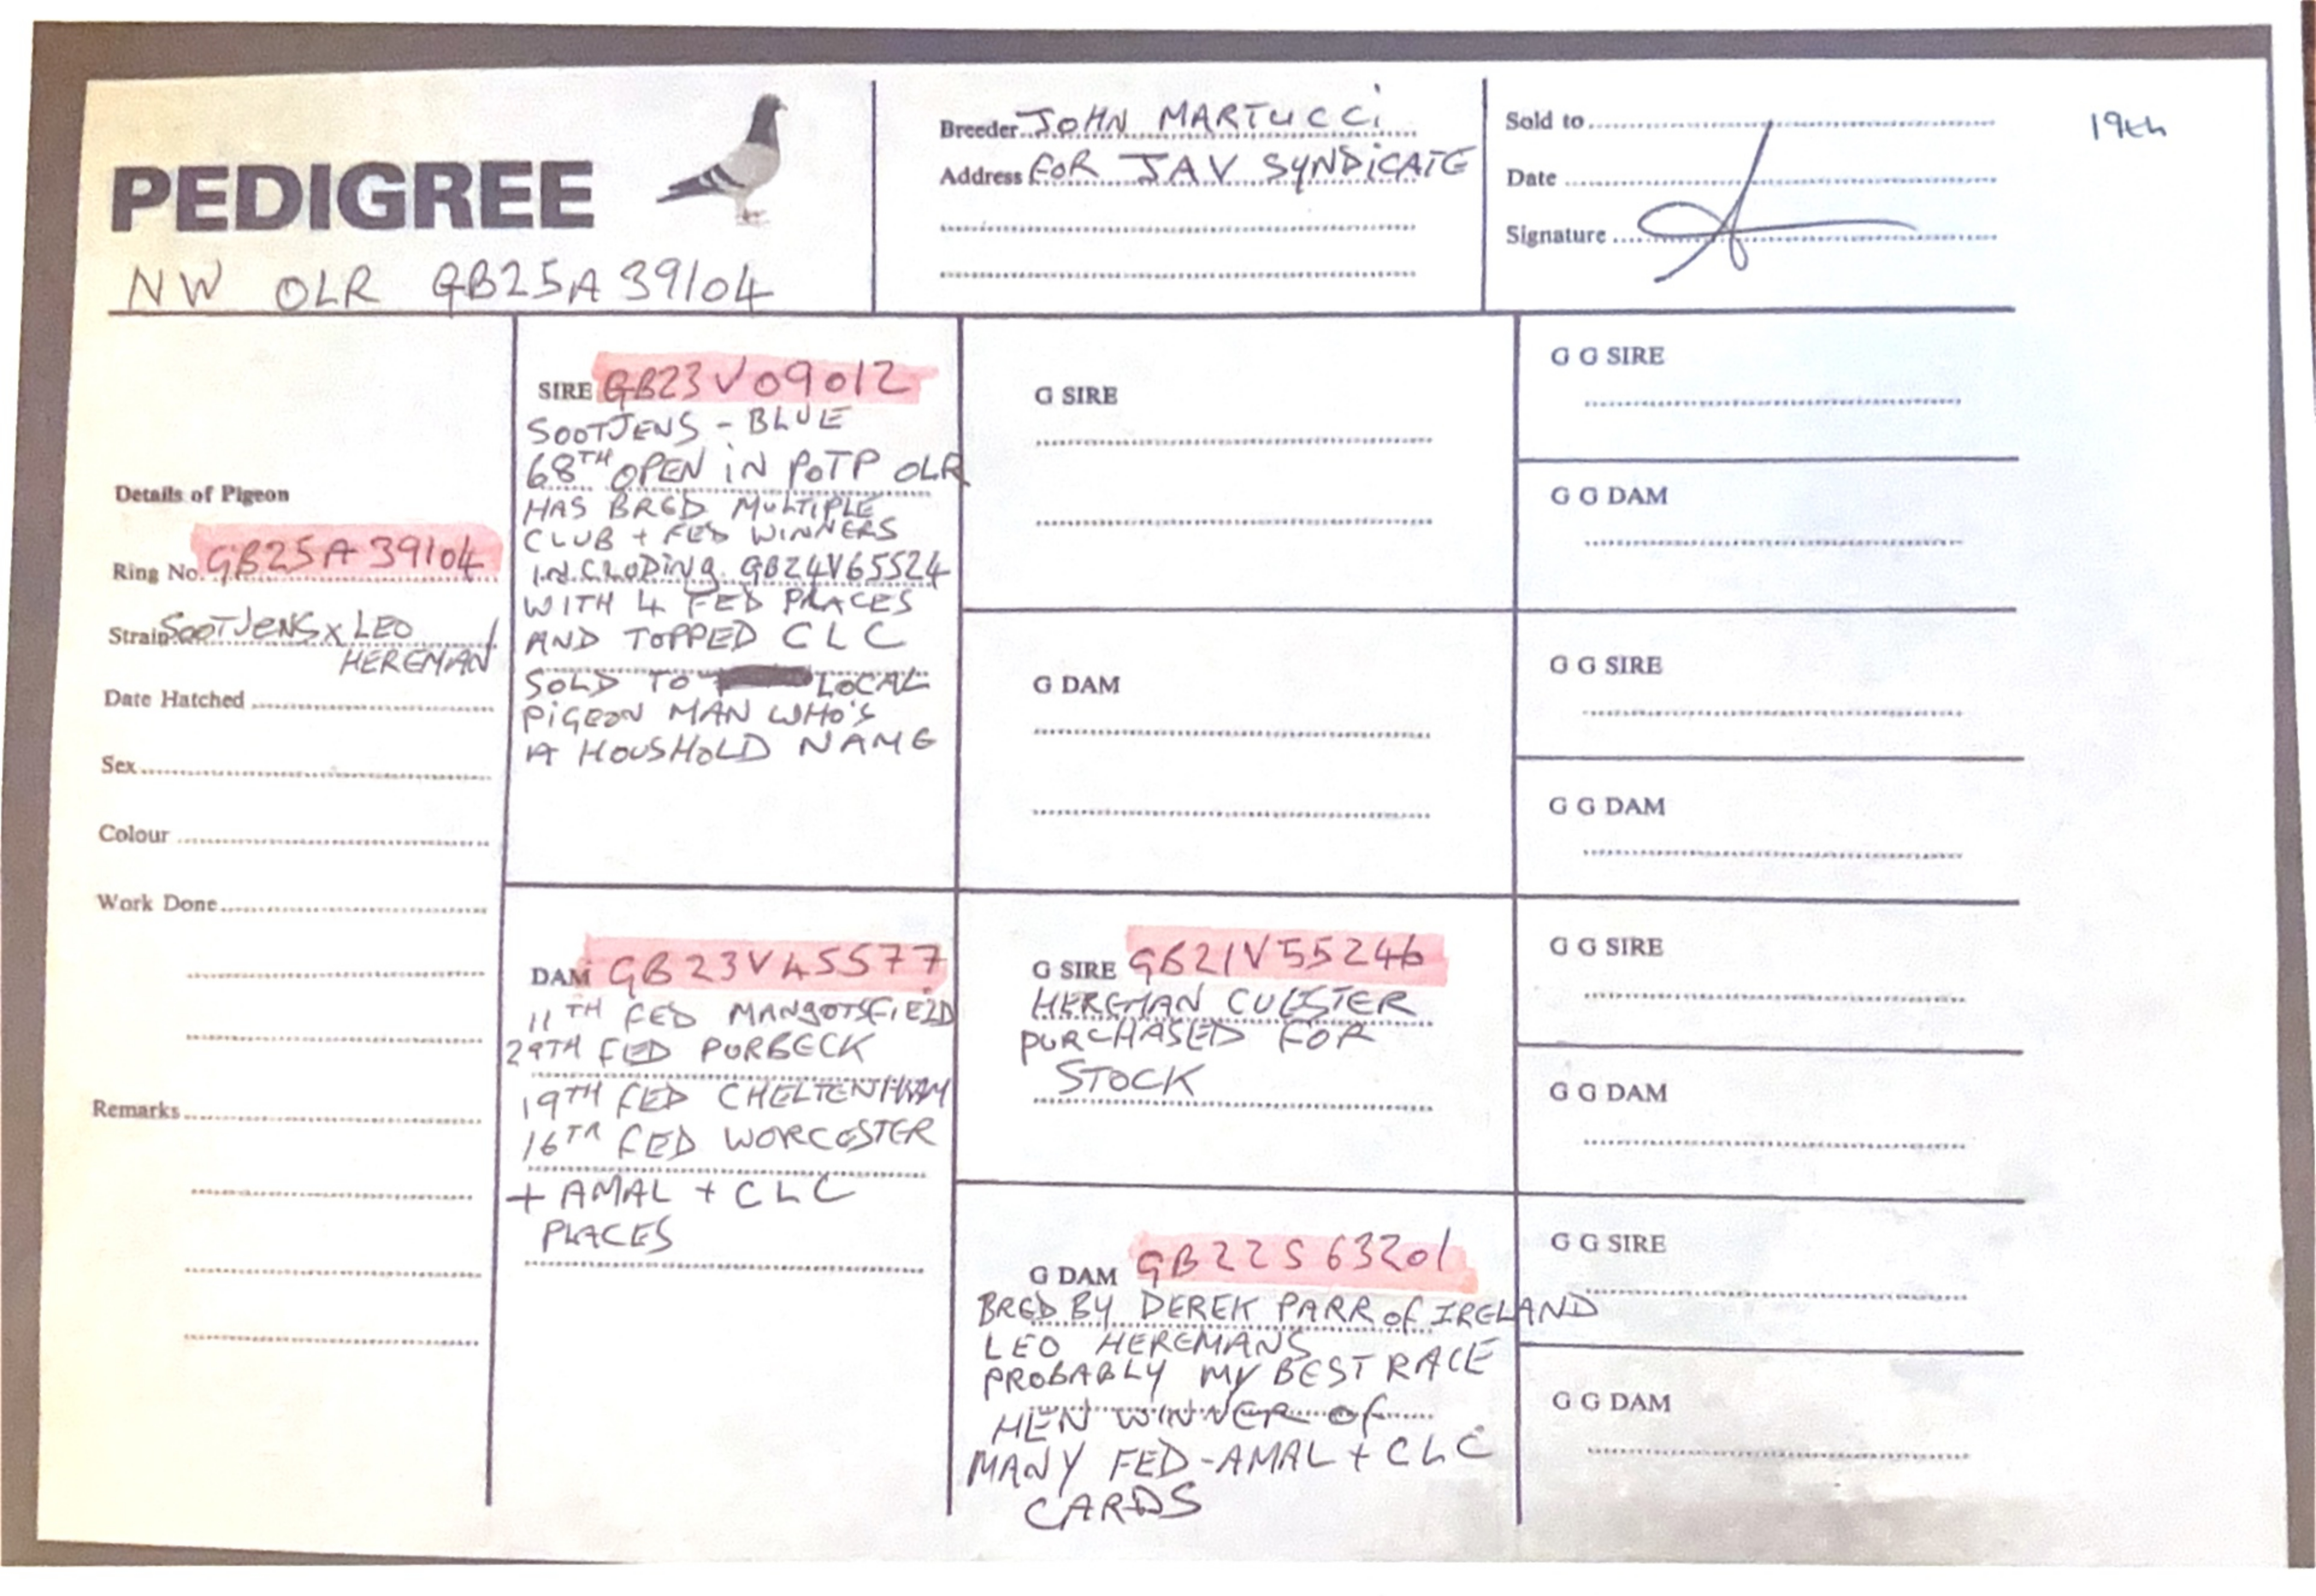 PEDIGREE
NW OLR GB25A39104
Breeder JOHN MARTUCCi
Address FOR JAV SYNDiCATE
Sold to
Date
Signature
19th
Details of Pigeon
Ring No. GB25A39104
Strain SOOTJENS x LEO
HEREMAN
Date Hatched
Sex
Colour
Work Done
Remarks
SIRE GB23V09012
SOOTJENS - BLUE
68TH OPEN iN POTP OLR
HAS BRED MULTIPLE
CLUB + FED WINNERS
INCLUDiNg GB24V65524
WITH 4 FED PLACES
AND TOPPED CLC
SOLD TO LOCAL
PiGEON MAN WHO'S
A HOUSHOLD NAME
DAM GB23V45577
11TH FED MANGOTSFiELD
29TH FED PURBECK
19TH FED CHELTENHAM
16TH FED WORCESTER
+ AMAL + CLC
PLACES
G SIRE
G DAM
G SIRE GB21V55246
HEREMAN CUESTER
PURCHASED FOR
STOCK
G DAM GB22S63201
BRED BY DEREK PARR of IRELAND
LEO HEREMANS
PROBABLY MY BEST RACE
HEN WINNER of
MANY FED-AMAL + CLC
CARDS
G G SIRE
G G DAM
G G SIRE
G G DAM
G G SIRE
G G DAM
G G SIRE
G G DAM